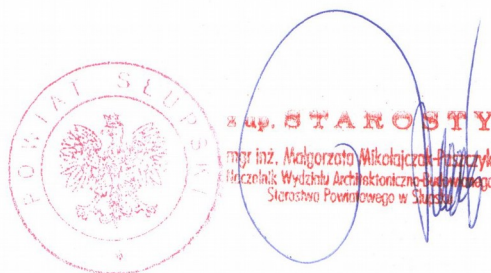 POWIAT SŁUPSKI
z up. STAROSTY
mgr inż. Małgorzata Mikołajczak-Paszczyk
Naczelnik Wydziału Architektoniczno-Budowlanego
Starostwa Powiatowego w Słupsku